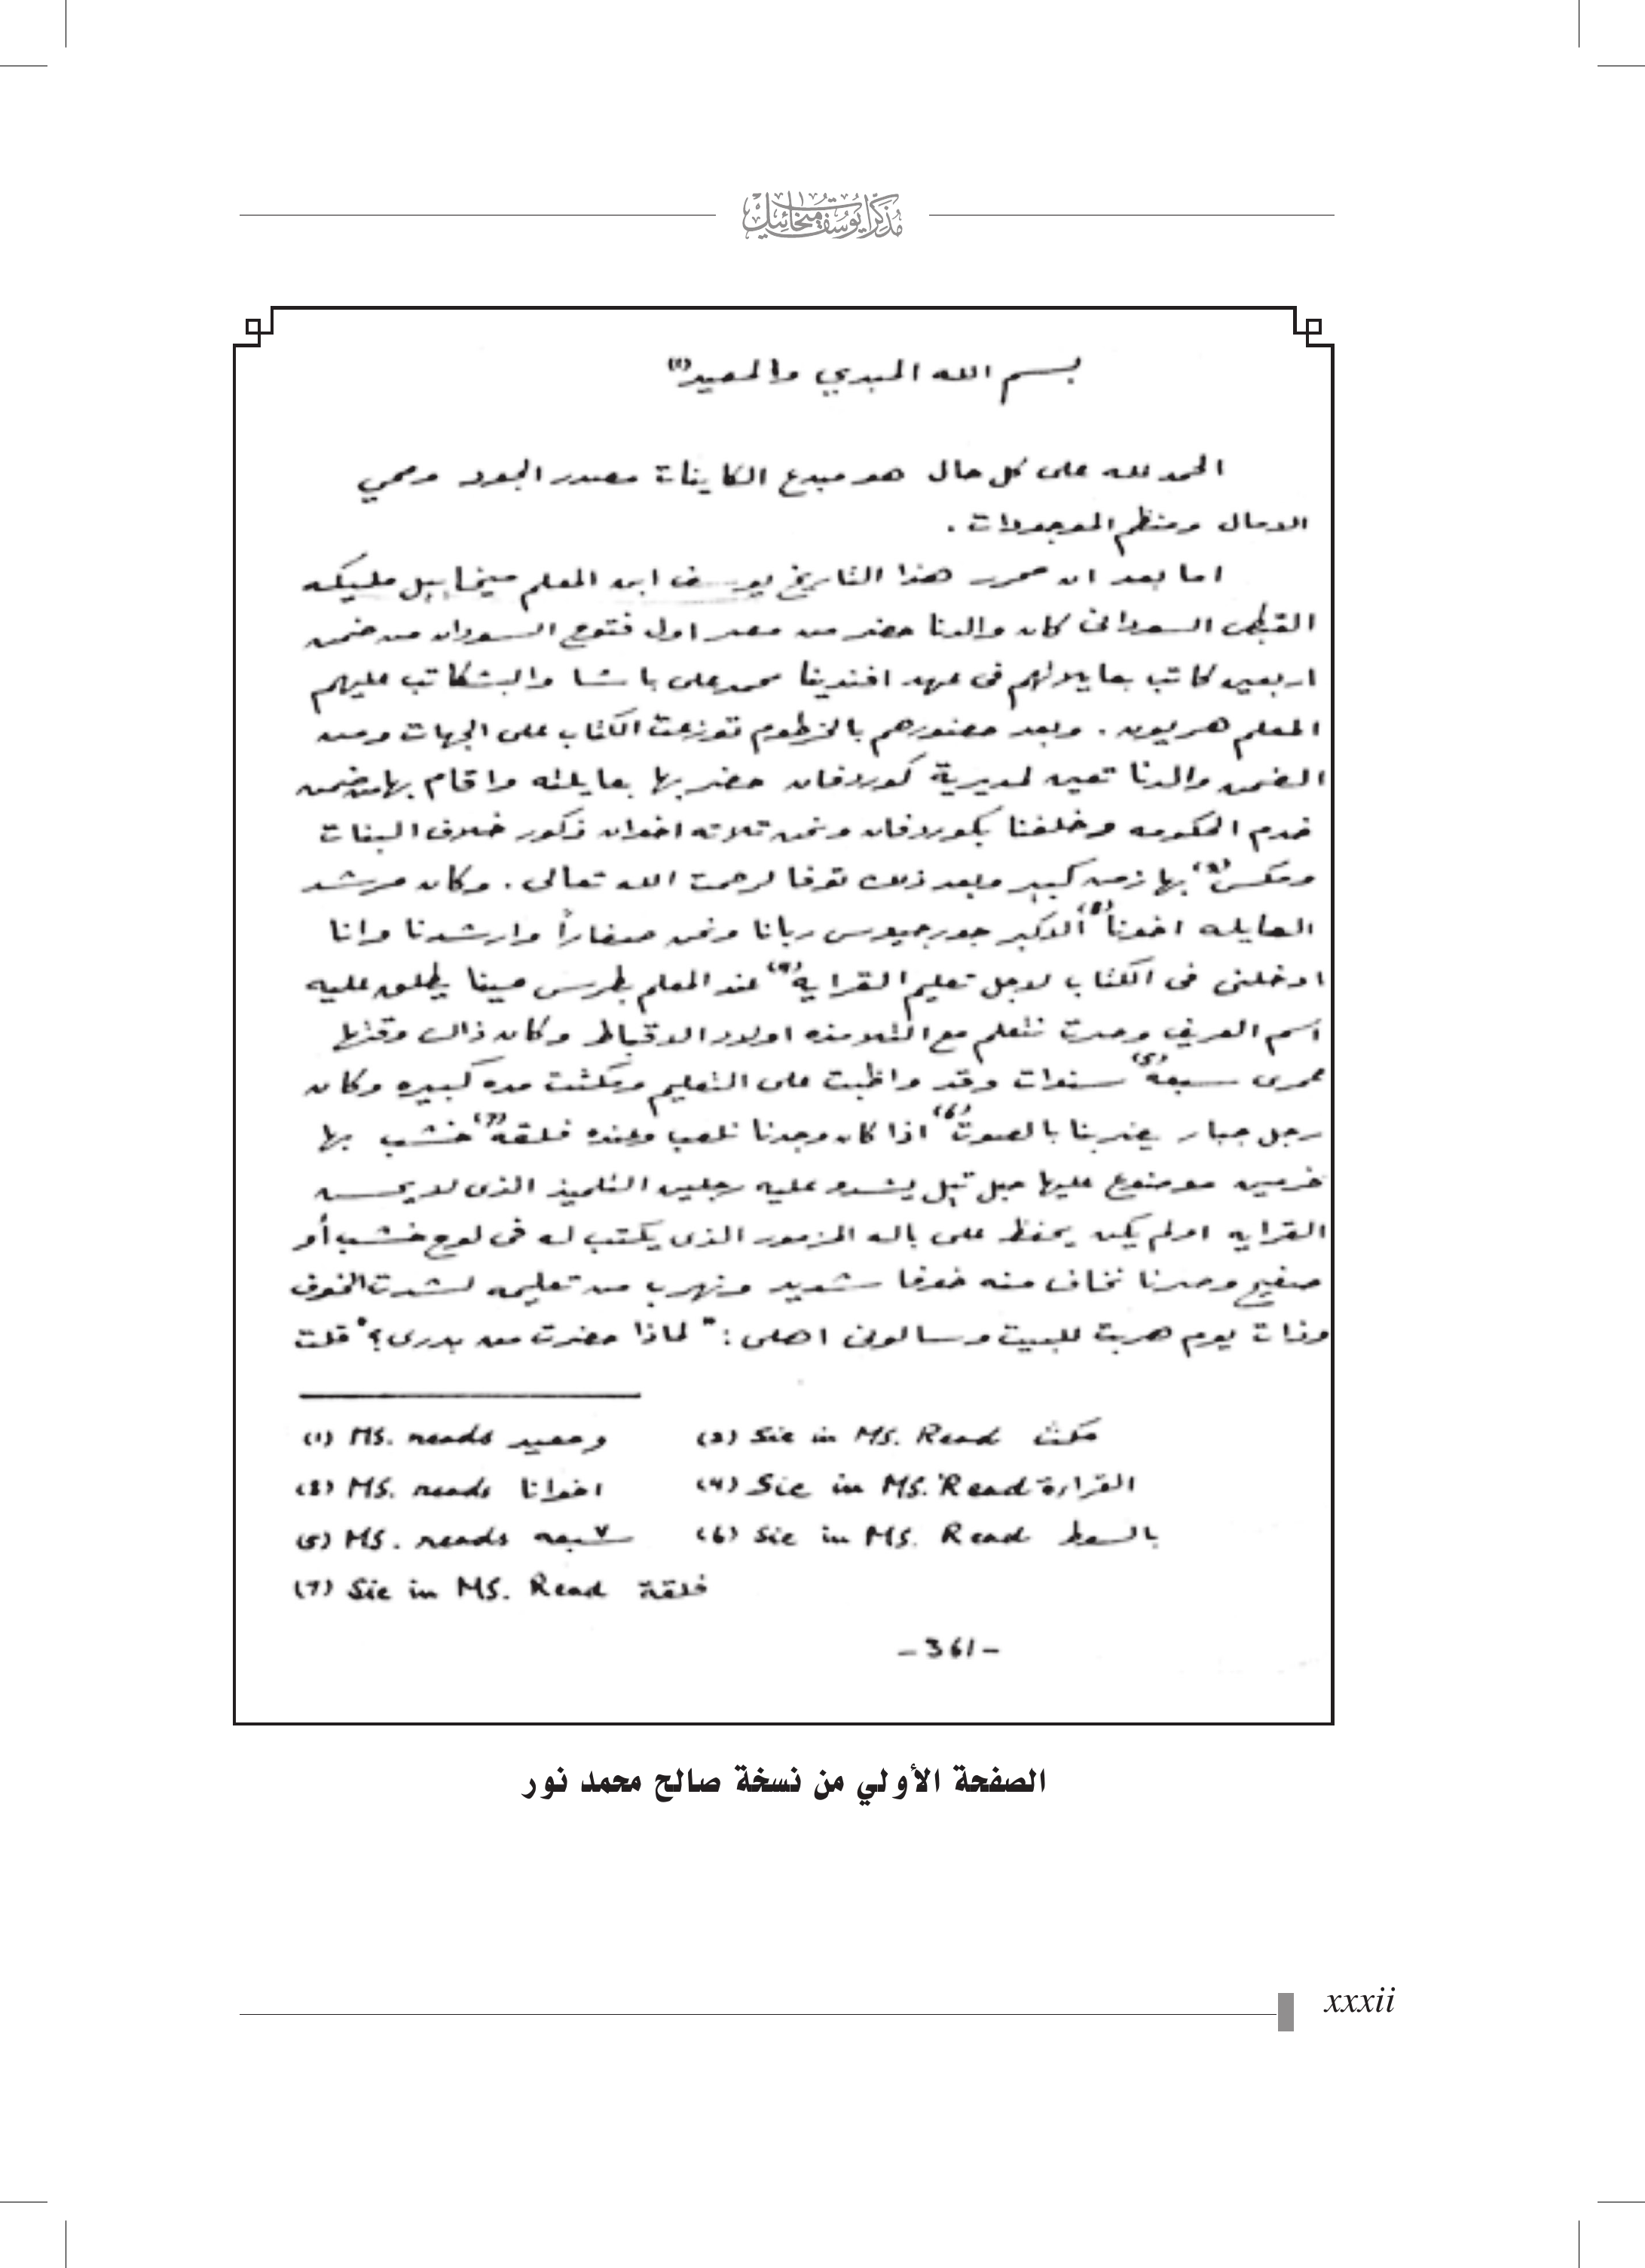 مذكرات يوسف ميخائيل
بسم الله المبدي والمعيد(١)
الحمد لله على كل حال هو مبدع الكاينات مصدر الجود ومحي
الامال ومنظم الموجودات .
اما بعد ان محرر هذا التاريخ يوسف ابن المعلم ميخاييل مليكه
القبطى السودانى كان والدنا حضر من مصر اول فتوح السودان من ضمن
اربعين كاتب بعايلاتهم فى عهد افندينا محمد على باشا والبشكاتب عليهم
المعلم هريون . وبعد حضورهم بالخرطوم توزعت الكتاب على الجهات ومن
الضمن والدنا تعين لمديرية كوردفان حضر بها بعايلته واقام بها من ضمن
خدم الحكومه وخلفنا بكوردفان ونحن تلاته اخوان ذكور خلاف البنات
ومكس(2) بها زمن كبير وبعد ذلك توفا لرحمت الله تعالى . وكان مرشد
العايله اخونا(3) الاكبر جورجيوس ربانا ونحن صغاراً وارشدنا وانا
ادخلنى فى الكتاب لاجل تعليم القرايه(4) عند المعلم بطرس مينا يطلق عليه
اسم العريف وصرت نتعلم مع التلامذه اولاد الاقباط وكان ذالك وقتها
عمرى سبعه(5) سنوات وقد واظبت على التعليم ومكثت مده كبيره وكان
رجل جبار يضربنا بالصوت(6) اذا كان وجدنا نلعب وعنده فلقه(7) خشب بها
خرمين موضوع عليها حبل تيل يشدو عليه رجلين التلميذ الذى لا يحسن
القرايه اولم يكن يحفظ على باله المزمور الذى يكتب له فى لوح خشب أو
صفيح وصرنا نخاف منه خوفا شديد ونهرب من تعليمه لشدت الخوف
وذات يوم هربت للبيت وسالونى اهلى : " لماذا حضرت من بدرى ؟ " قلت
(1) MS. reads ومعيد (2) Sic in MS. Read مكث
(3) MS. reads اخوانا (4) Sic in MS. Read القراءة
(5) MS. reads شبعه (6) Sic in MS. Read بالسوط
(7) Sic in MS. Read فلقة
- 361 -
الصفحة الأولي من نسخة صالح محمد نور
xxxii